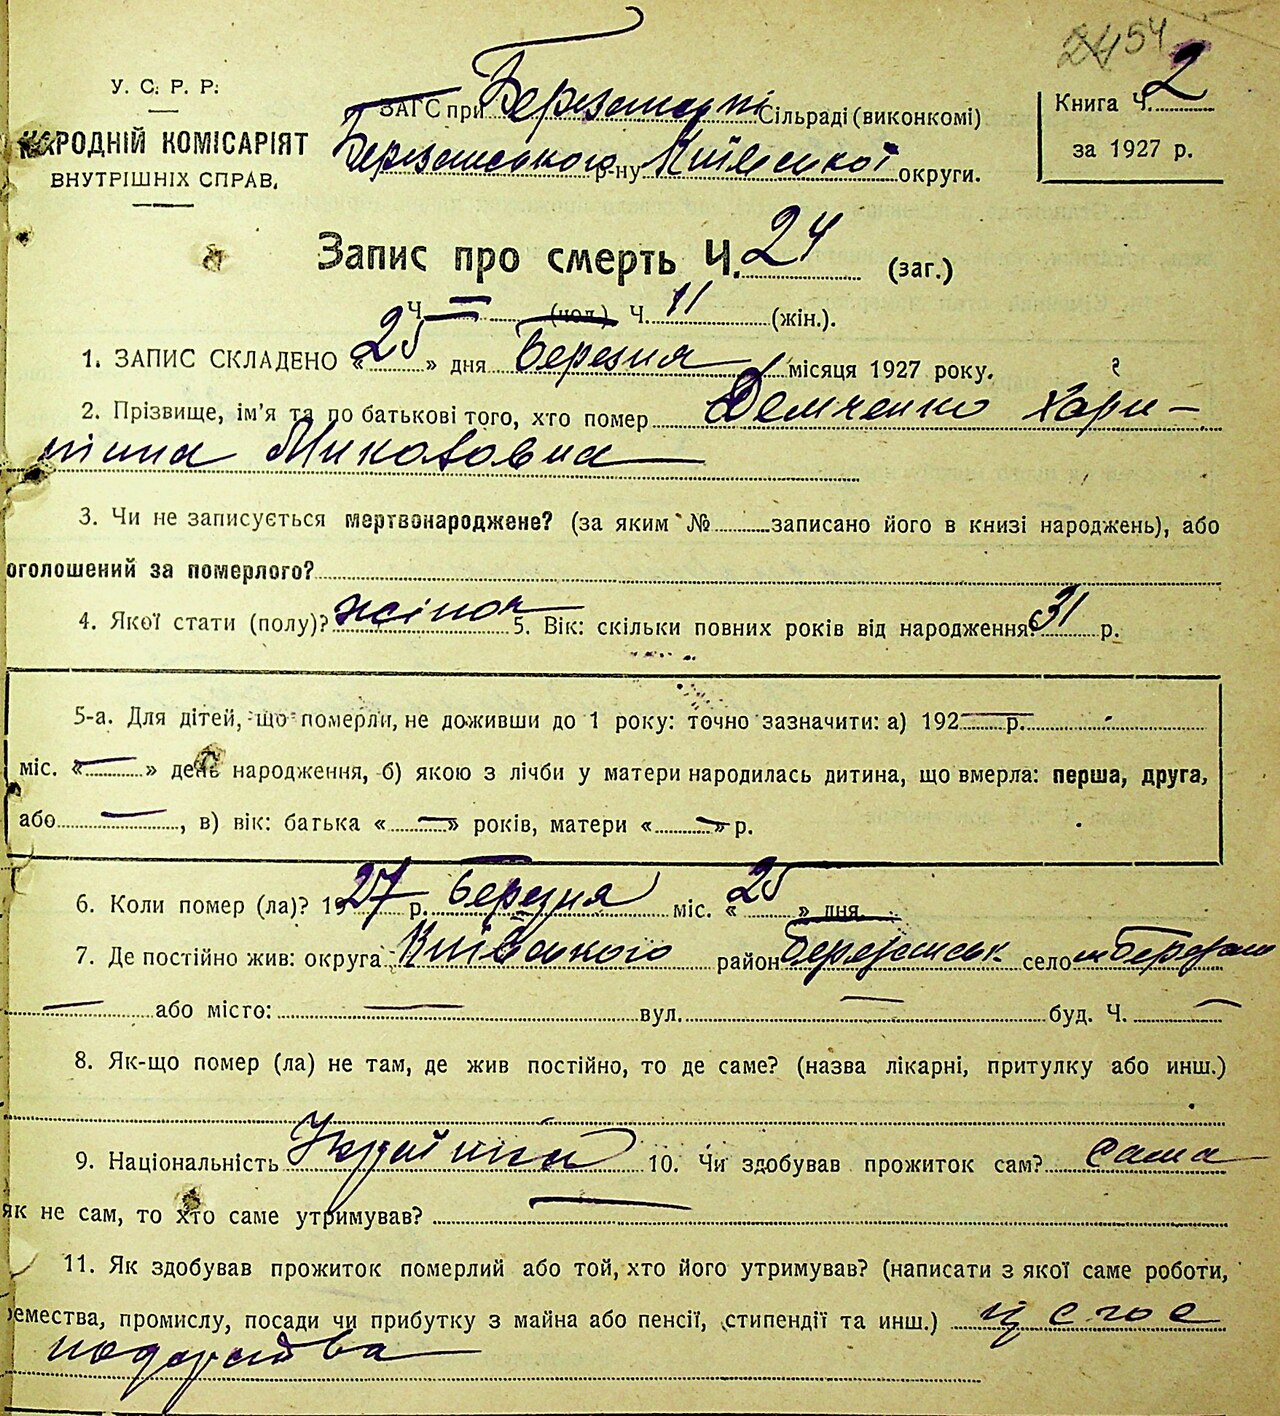 54
У. С. Р. Р.
НАРОДНІЙ КОМІСАРІЯТ
ВНУТРІШНІХ СПРАВ.
ЗАГС при Сільраді (виконкомі)
Березанського р-ну Київської округи.
Книга Ч. 2
за 1927 р.
Запис про смерть Ч. 24 (заг.)
Ч. — (чол.) Ч. 11 (жін.).
1. ЗАПИС СКЛАДЕНО «25» дня Березня місяця 1927 року.
2. Прізвище, ім'я та по батькові того, хто помер Демченко Хари-
тина Миколовна
3. Чи не записується мертвонароджене? (за яким № записано його в книзі народжень), або
оголошений за померлого?
4. Якої стати (полу)? жіноч 5. Вік: скільки повних років від народження? 31 р.
5-а. Для дітей, що померли, не доживши до 1 року: точно зазначити: а) 192 — р.
міс. « — » день народження, б) якою з лічби у матери народилась дитина, що вмерла: перша, друга,
або — , в) вік: батька « — » років, матери « — » р.
6. Коли помер (ла)? 1927 р. Березня міс. «25» дня.
7. Де постійно жив: округа Київського район Березанськ село м Березань
— або місто: — вул. — буд. Ч. —
8. Як-що помер (ла) не там, де жив постійно, то де саме? (назва лікарні, притулку або инш.)
9. Національність 10. Чи здобував прожиток сам? сама
як не сам, то хто саме утримував? —
11. Як здобував прожиток померлий або той, хто його утримував? (написати з якої саме роботи,
ремества, промислу, посади чи прибутку з майна або пенсії, стипендії та инш.)
подарства